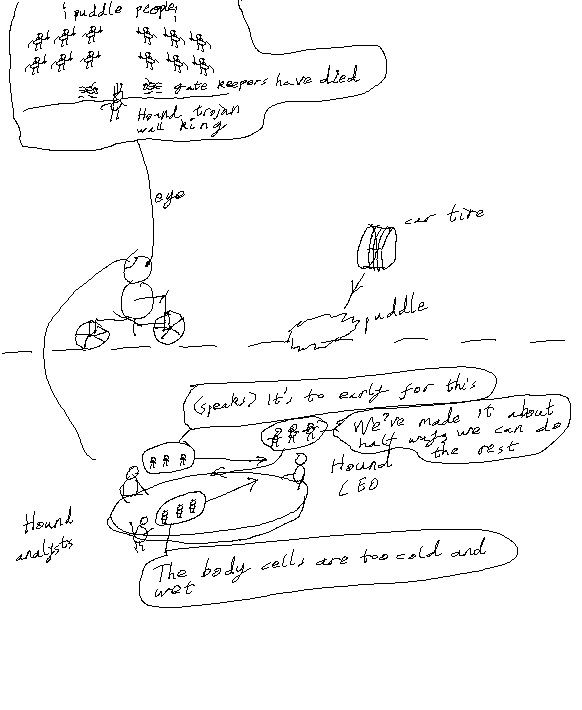 puddle people
gate keepers have died
Hound trojan
wall king
eye
car tire
puddle
(speaks) It's to early for this
We've made it about
half way, we can do
the rest
Hound
CEO
Hound
analysts
The body cells are too cold and
wet